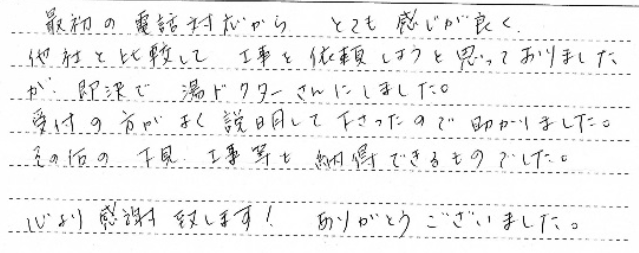 最初の電話対応から とても感じが良く、
他社と比較して 工事を依頼しようと思っておりました
が 即決で 湯ドクターさんにしました。
受付の方がよく説明して下さったので助かりました。
その後の下見、工事等も納得できるものでした。
心より感謝致します! ありがとうございました。